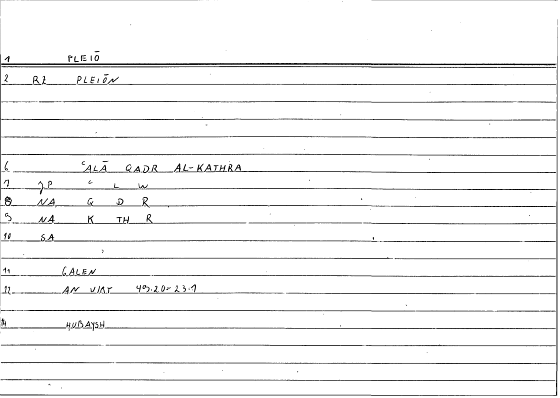 1 PLEIŌ
2 RZ PLEIŌN
6 ʿALĀ QADR AL-KATHRA
7 JP ʿ L W
8 NA Q D R
9 NA K TH R
10 SA
11 GALEN
12 AN VIRT 49.20-23.1
14 ḤUBAYSH